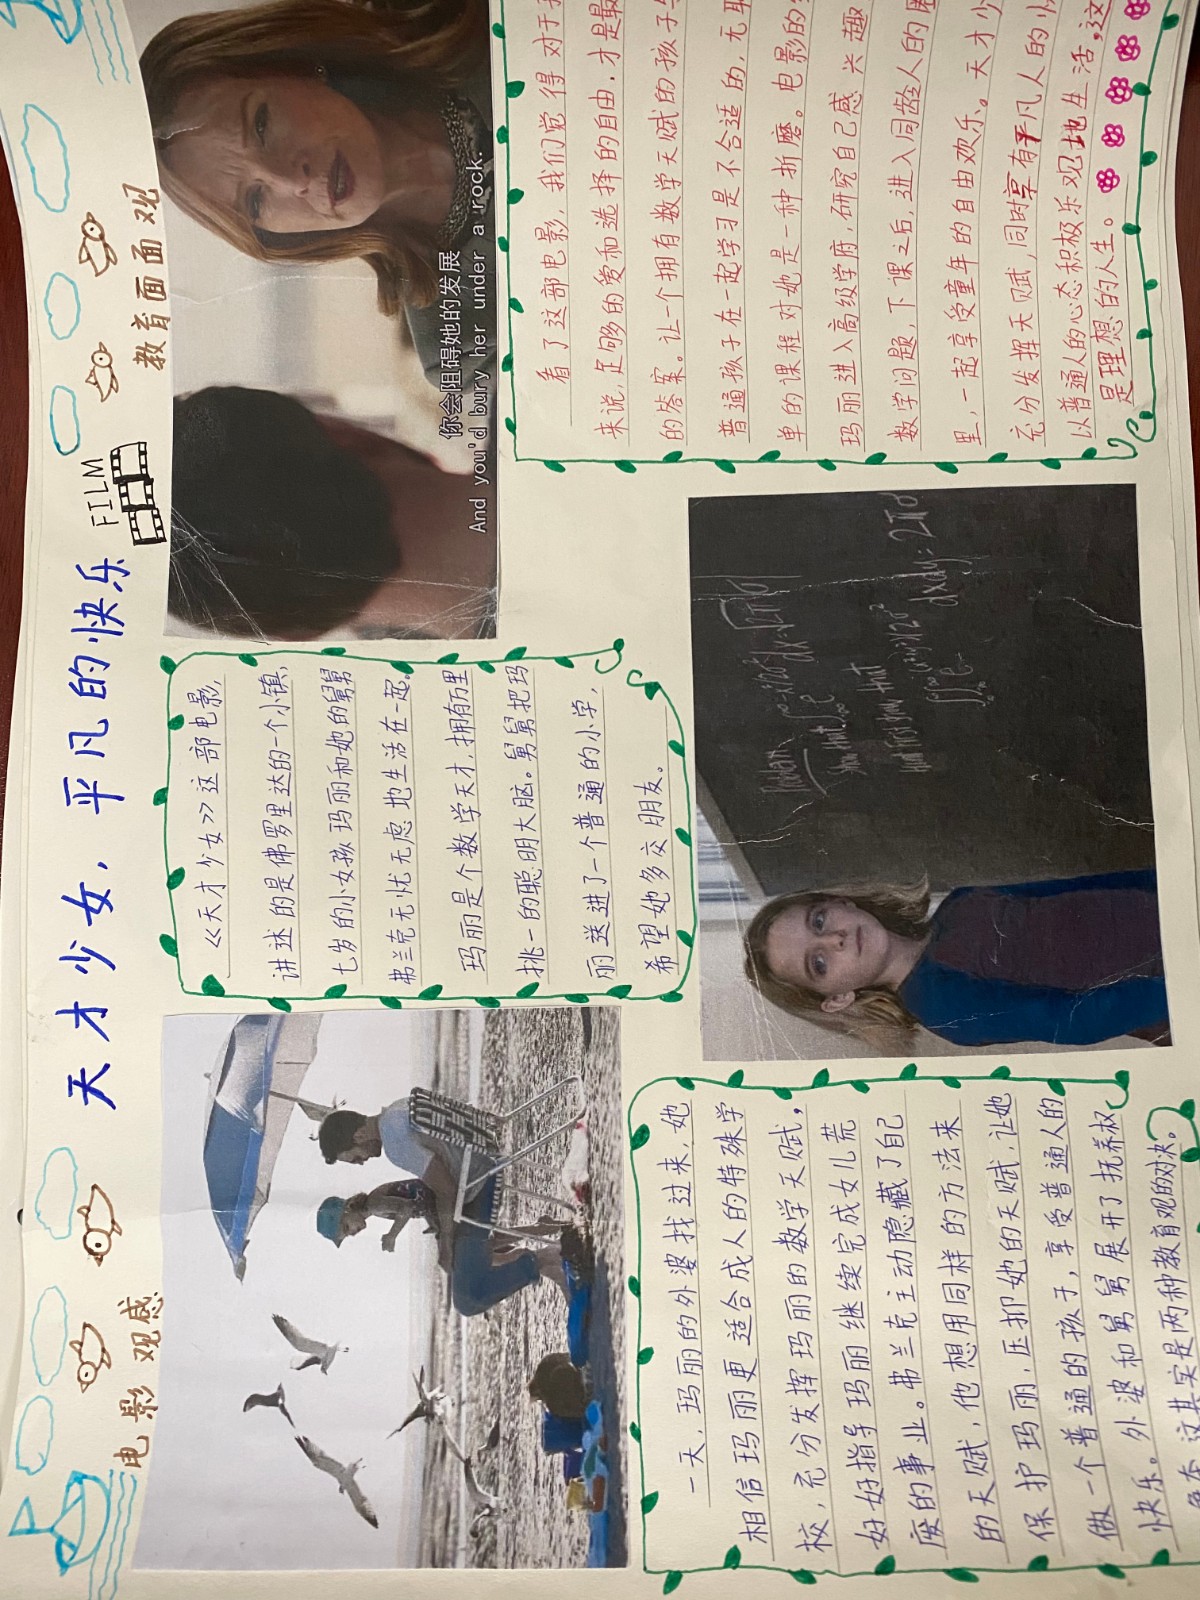 天才少女，平凡的快乐
FILM
电影观感
教育面面观
《天才少女》这部电影，
讲述的是佛罗里达的一个小镇，
七岁的小女孩玛丽和她的舅舅
弗兰克无忧无虑地生活在一起。
玛丽是个数学天才，拥有万里
挑一的聪明大脑。舅舅把玛
丽送进了一个普通的小学，
希望她多交朋友。
你会阻碍她的发展
And you'd bury her under a rock.
一天，玛丽的外婆找过来，她
相信玛丽更适合成人的特殊学
校，充分发挥玛丽的数学天赋，
好好指导玛丽继续完成女儿荒
废的事业。弗兰克主动隐藏了自己
的天赋，他想用同样的方法来
保护玛丽，压抑她的天赋，让她
做一个普通的孩子，享受普通人的
快乐。外婆和舅舅展开了抚养权
这其实是两种教育观的对决。
Problem
Show that
dx = √2π σ
Hint: First show that
dxdy = 2πσ
看了这部电影，我们觉得对于
来说，足够的爱和选择的自由，才是最
的答案。让一个拥有数学天赋的孩子
普通孩子在一起学习是不合适的，无
单的课程对她是一种折磨。电影的
玛丽进入高级学府，研究自己感兴趣
数学问题，下课之后，进入同龄人的
里，一起享受童年的自由欢乐。天才少
充分发挥天赋，同时享有平凡人的
以普通人的心态积极乐观地生活，这
是理想的人生。